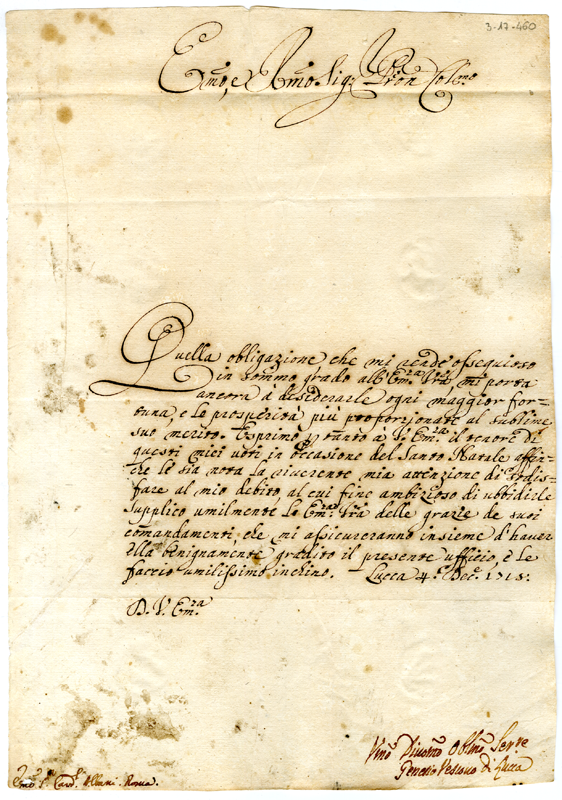 3-17-460
Emo, e Rmo Sig.r Pron Colmo
Quella obligazione che mi rende ossequioso
in sommo grado all' Em.za Vra mi porta
ancora à desiderarle ogni maggior for=
tuna, e le prosperità più proporzionate al sublime
suo merito. Esprimo p tanto à V. Em.za il tenore di
questi miei voti in occasione del Santo Natale affin-
che le sia nota la riverente mia attenzione di sodis-
fare al mio debito al cui fine ambizioso di ubbidirle
supplico umilmente l'Em.za Vra delle grazie de suoi
comandamenti, che mi assicureranno insieme d'haver
ella benignamente gradito il presente ufficio, e le
faccio umilissimo inchino. Lucca 4 Dec.e 1718.
D. V. Em.za
Vmo Divotmo Oblmo Serre
Genesio Vescovo di Lucca
Emo Sr Card.l Albani. Roma.